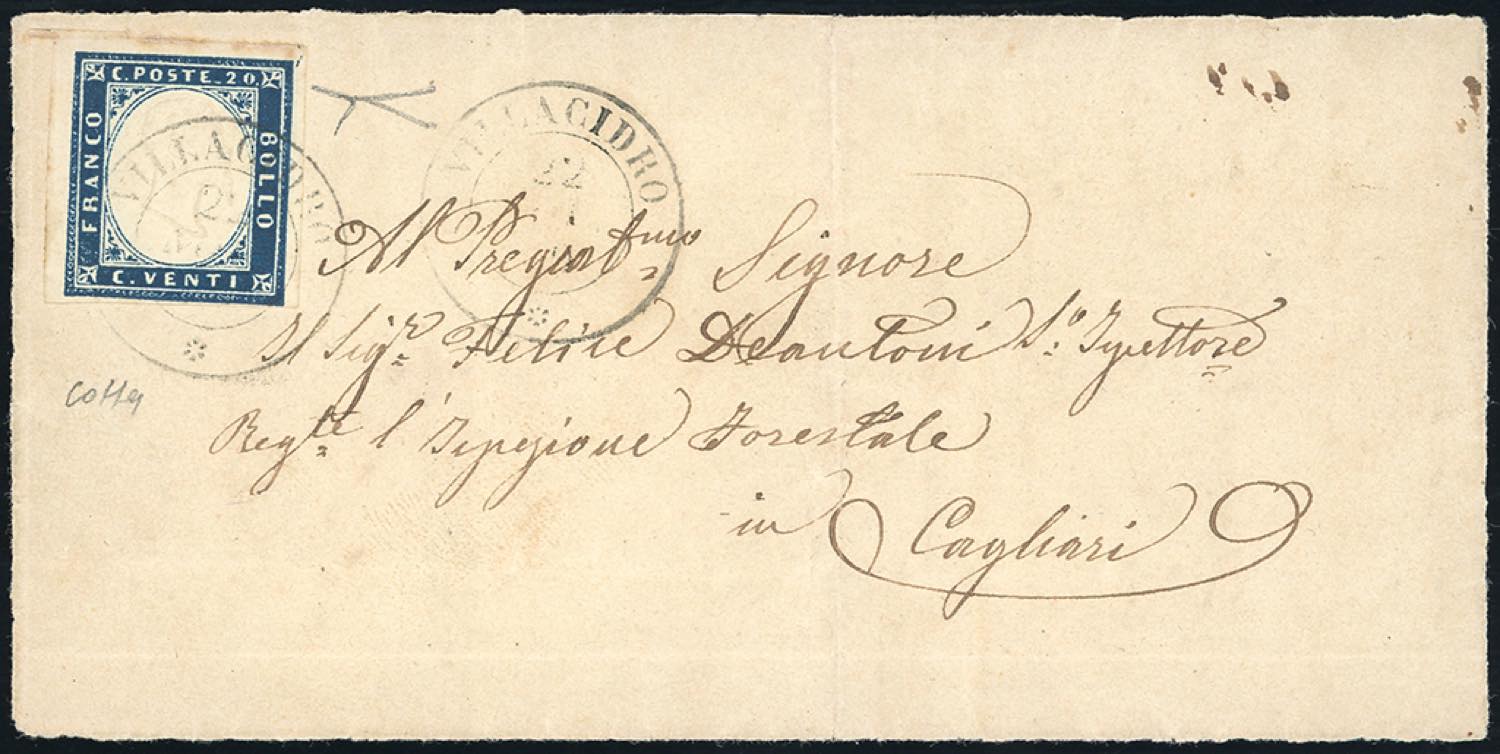 C. POSTE. 20.
FRANCO
BOLLO
C. VENTI
VILLACIDRO
VILLACIDRO
22
Al Pregiat.mo Signore
Il Sig.r Felice Deantoni S.o Ispettore
Regg.te l'Ispezione Forestale
in Cagliari